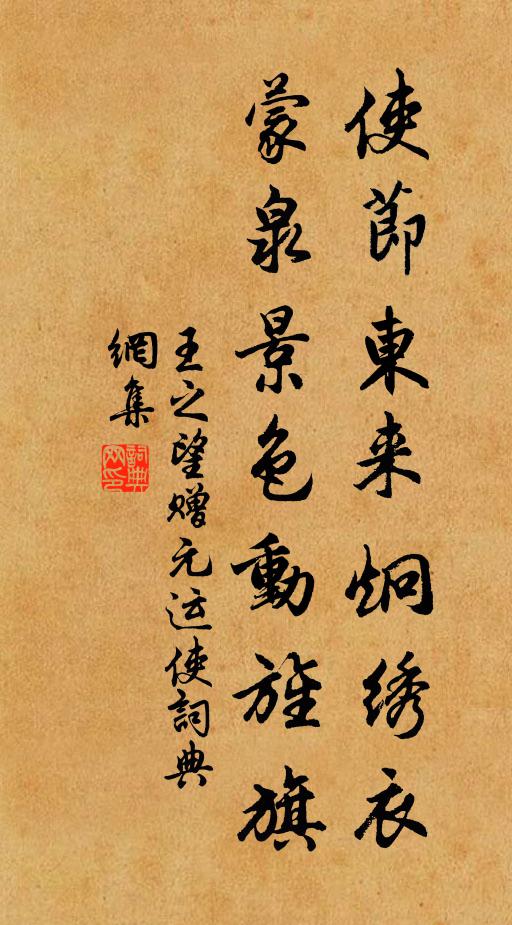 使節東来炯绣衣
蒙泉景色動旌旗
王之望赠元运使詞典
網集
詞典网印